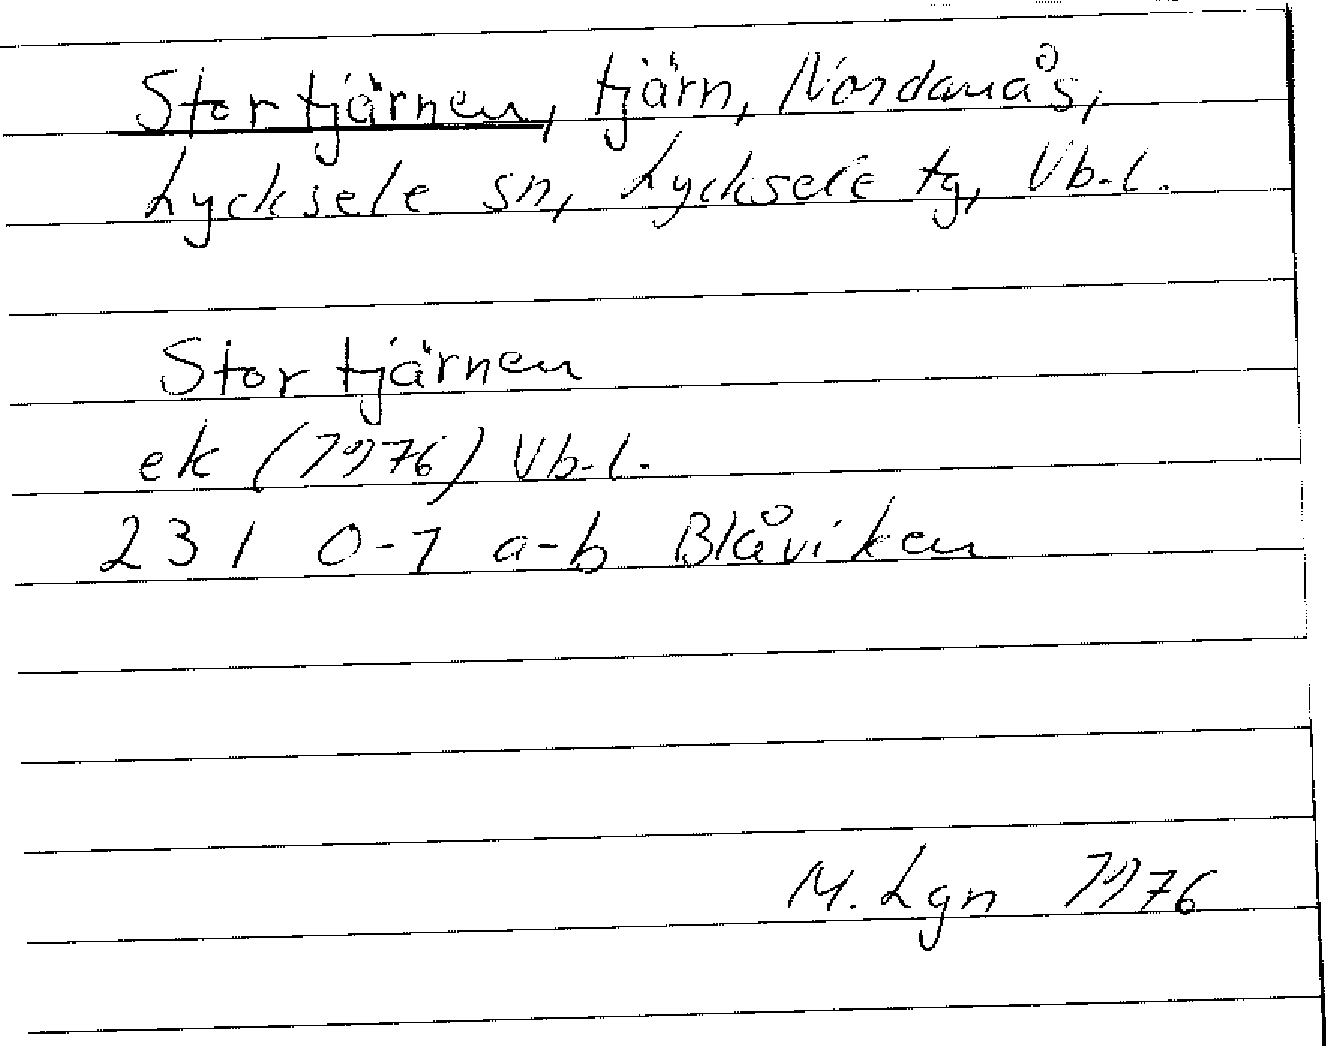 Stortjärnen, tjärn, Nordanås,
Lycksele sn, Lycksele tg, Vb-l.
Stortjärnen
ek (1976) Vb-l.
23 I 0-1 a-b Blåviken
M. Lgn 1976